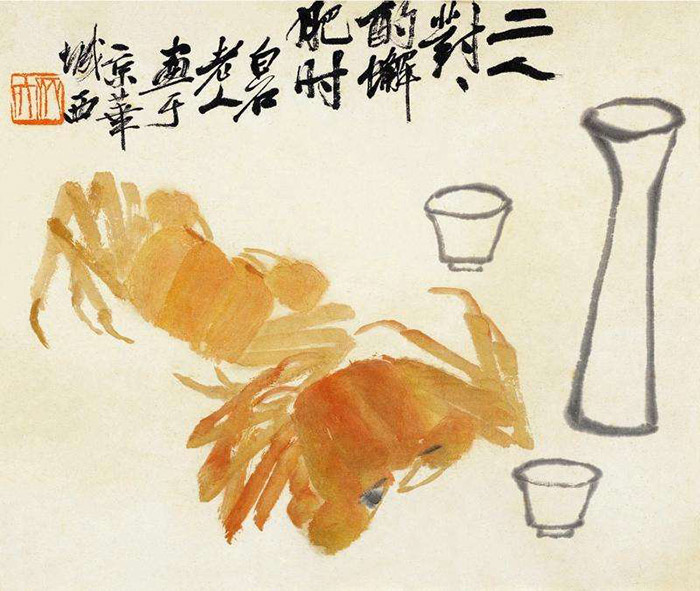 二人
對
酌蠏
肥时
白石
老人
畫于
京華
城西